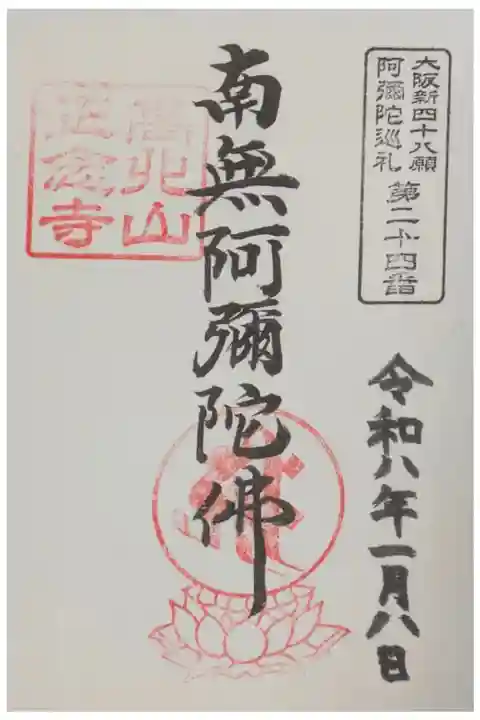 大阪新四十八願
阿彌陀巡礼 第二十四番
南無阿彌陀佛
高北山
正念寺
令和八年一月八日